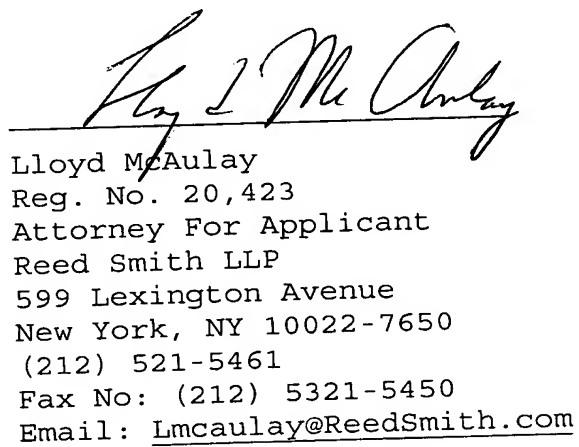 Lloyd McAulay
Lloyd McAulay
Reg. No. 20,423
Attorney For Applicant
Reed Smith LLP
599 Lexington Avenue
New York, NY 10022-7650
(212) 521-5461
Fax No: (212) 5321-5450
Email: Lmcaulay@ReedSmith.com